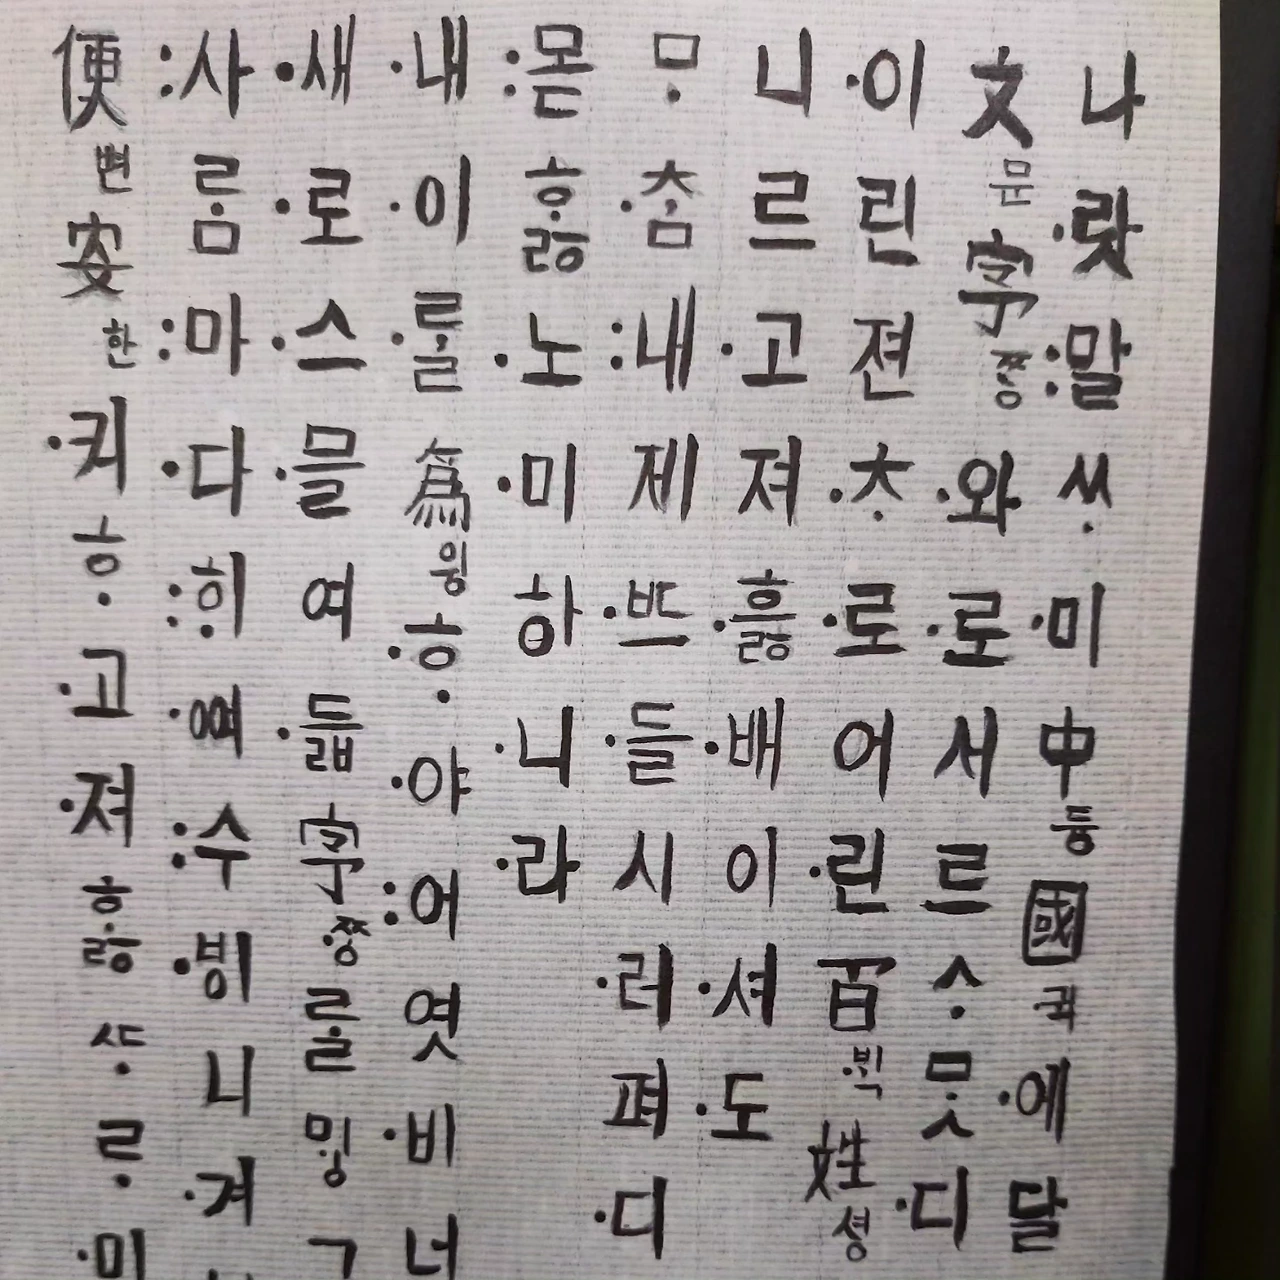 나·랏:말ᄊᆞ·미中듕國귁·에달
文문字ᄍᆞᆼ·와·로서르ᄉᆞᄆᆞᆺ·디
·이린젼·ᄎᆞ·로어·린百·ᄇᆡᆨ姓셩
니르·고져·흐ᇙ·배이·셔·도
ᄆᆞ·ᄎᆞᆷ:내제·ᄠᅳ·들시·러펴·디
:몯ᄒᆞᇙ·노·미하·니·라
·내·이·ᄅᆞᆯ爲윙·ᄒᆞ·야:어엿·비너
·새·로·스·믈여·듧字·ᄍᆞᆼᄅᆞᆯᄆᆡᆼ
:사ᄅᆞᆷ:마·다:ᄒᆡ·ᅇᅧ:수·ᄫᅵ니·겨
便변安한·킈ᄒᆞ·고·져ᄒᆞᇙᄯᆞᄅᆞ·미